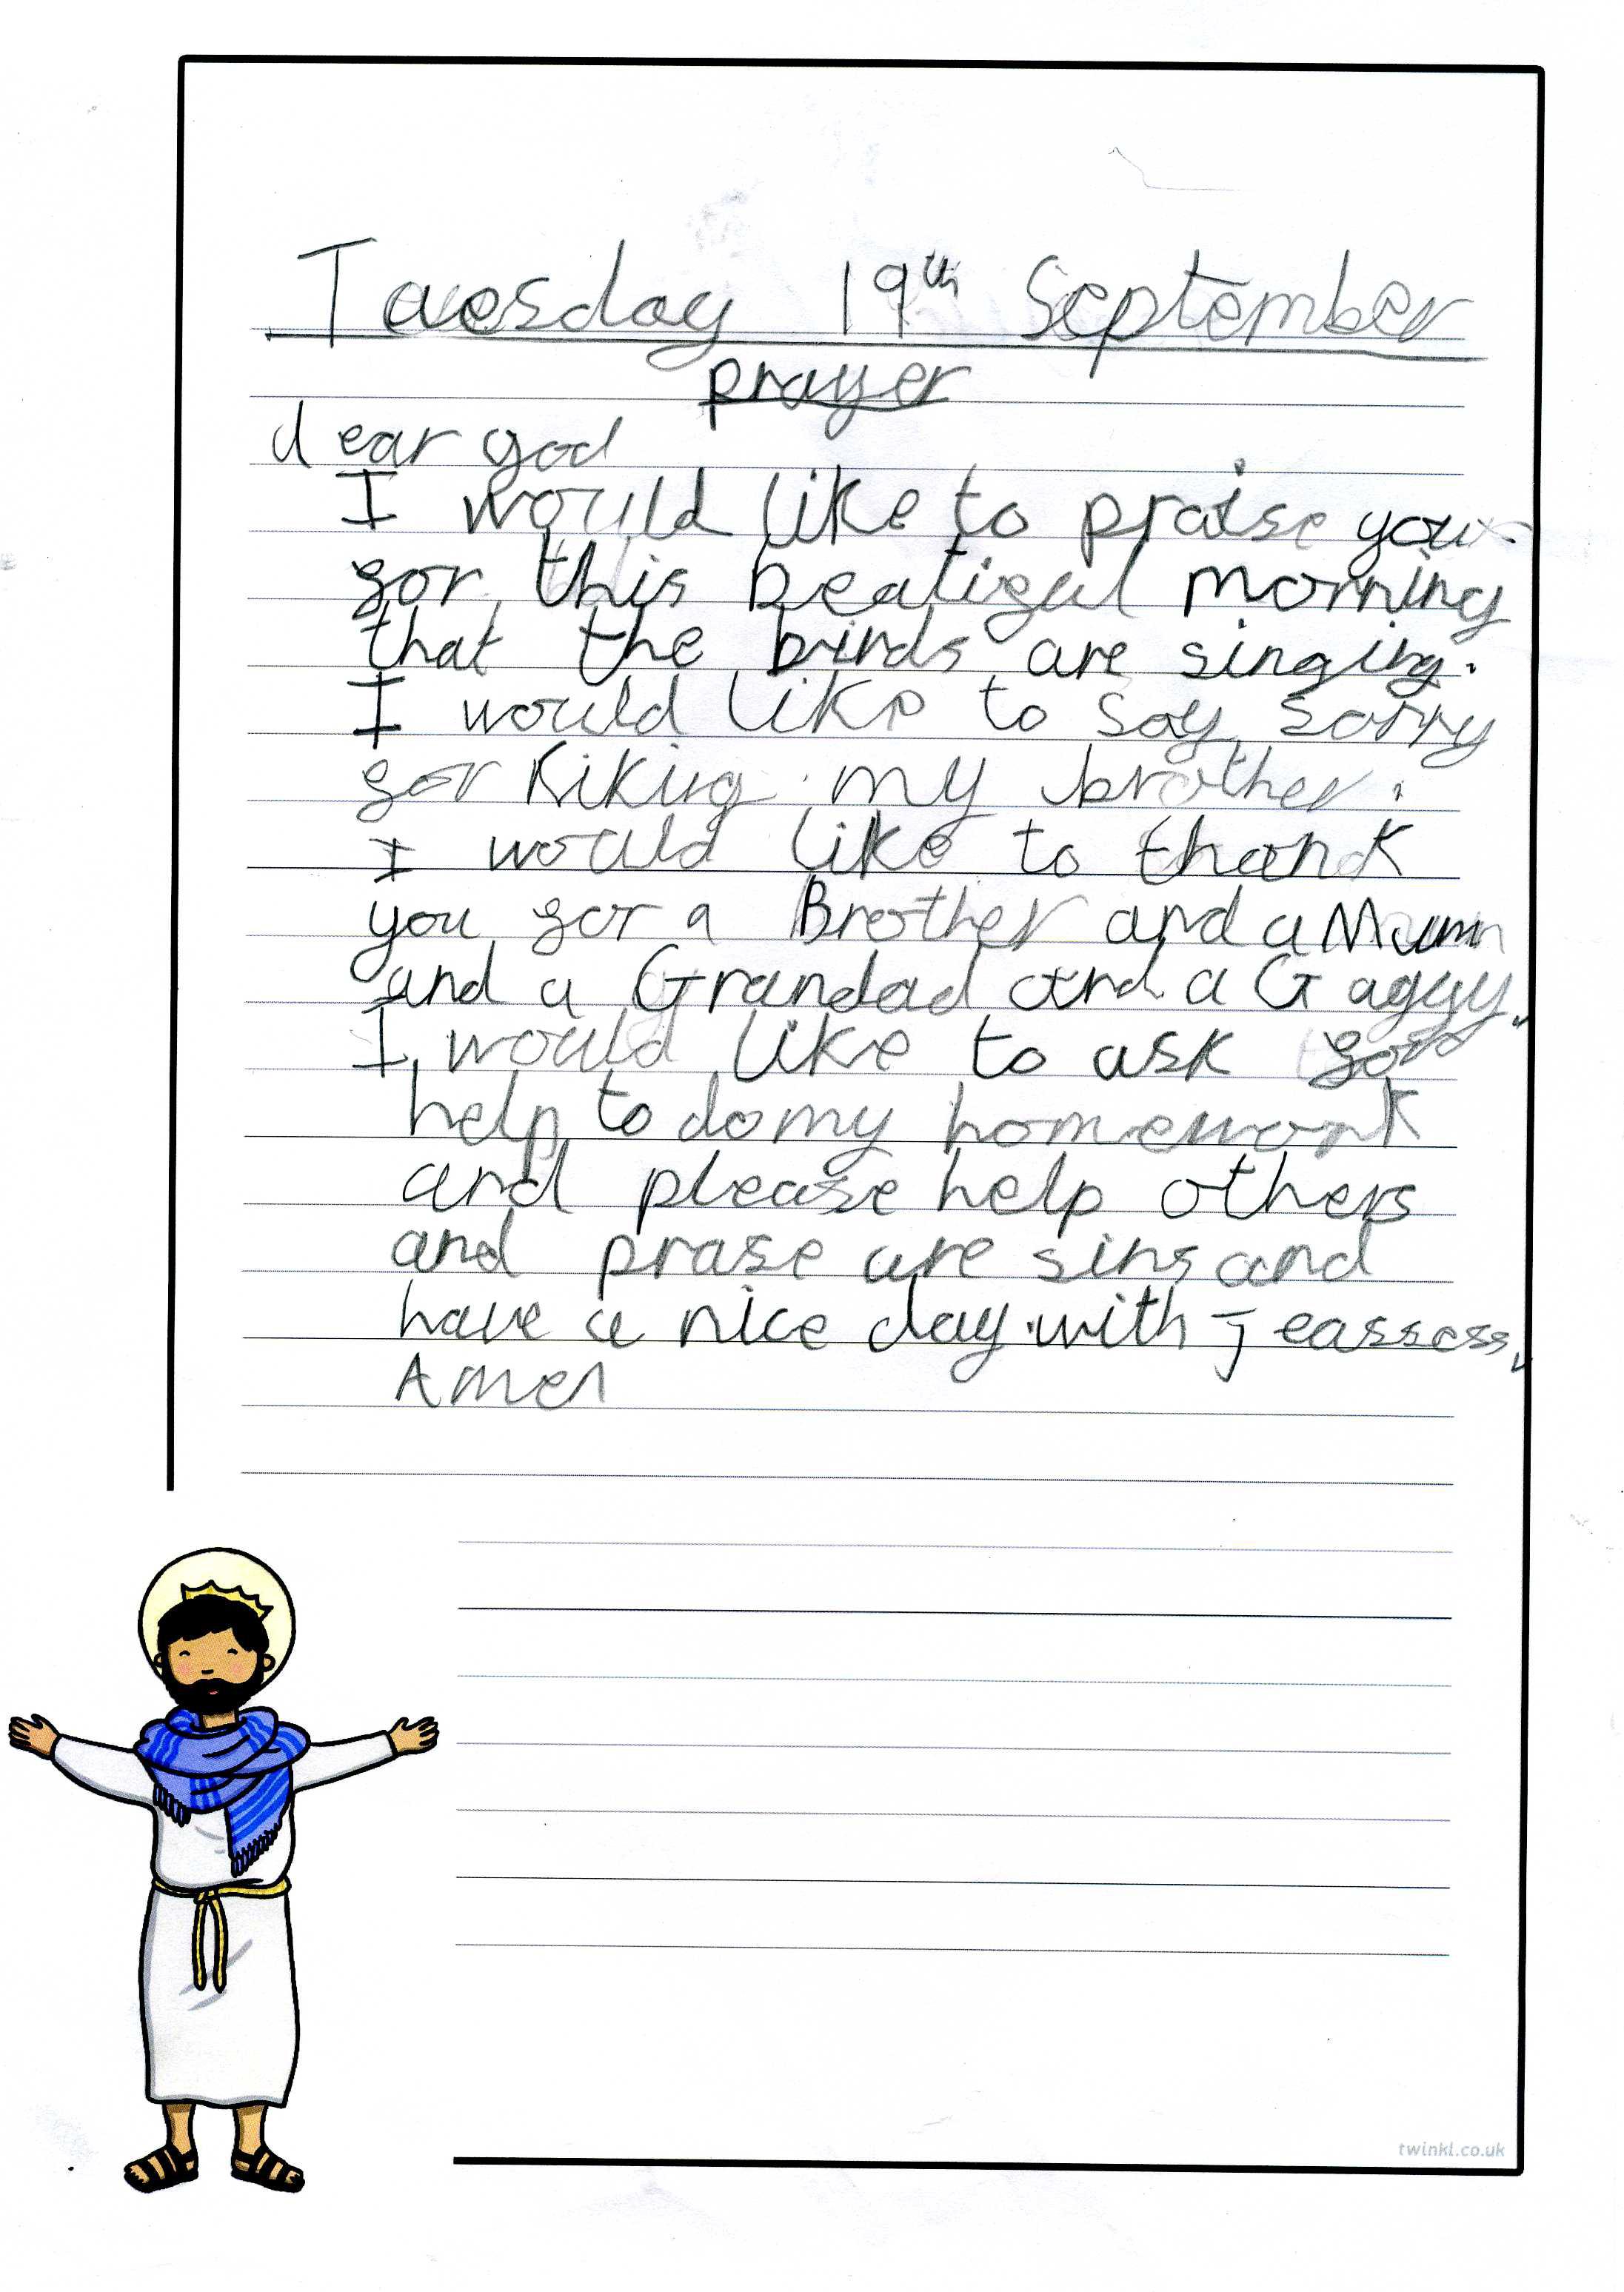 Tuesday 19th September
prayer
dear god
I would like to praise you
for this beatiful morning
that the birds are singing.
I would like to say sorry
for kiking my brother.
I would like to thank
you for a Brother and a Mum
and a Grandad and a Gaggy.
I would like to ask for
help to do my homework
and please help others
and prase are sins and
have a nice day with Jeassess.
Amen
twinkl.co.uk